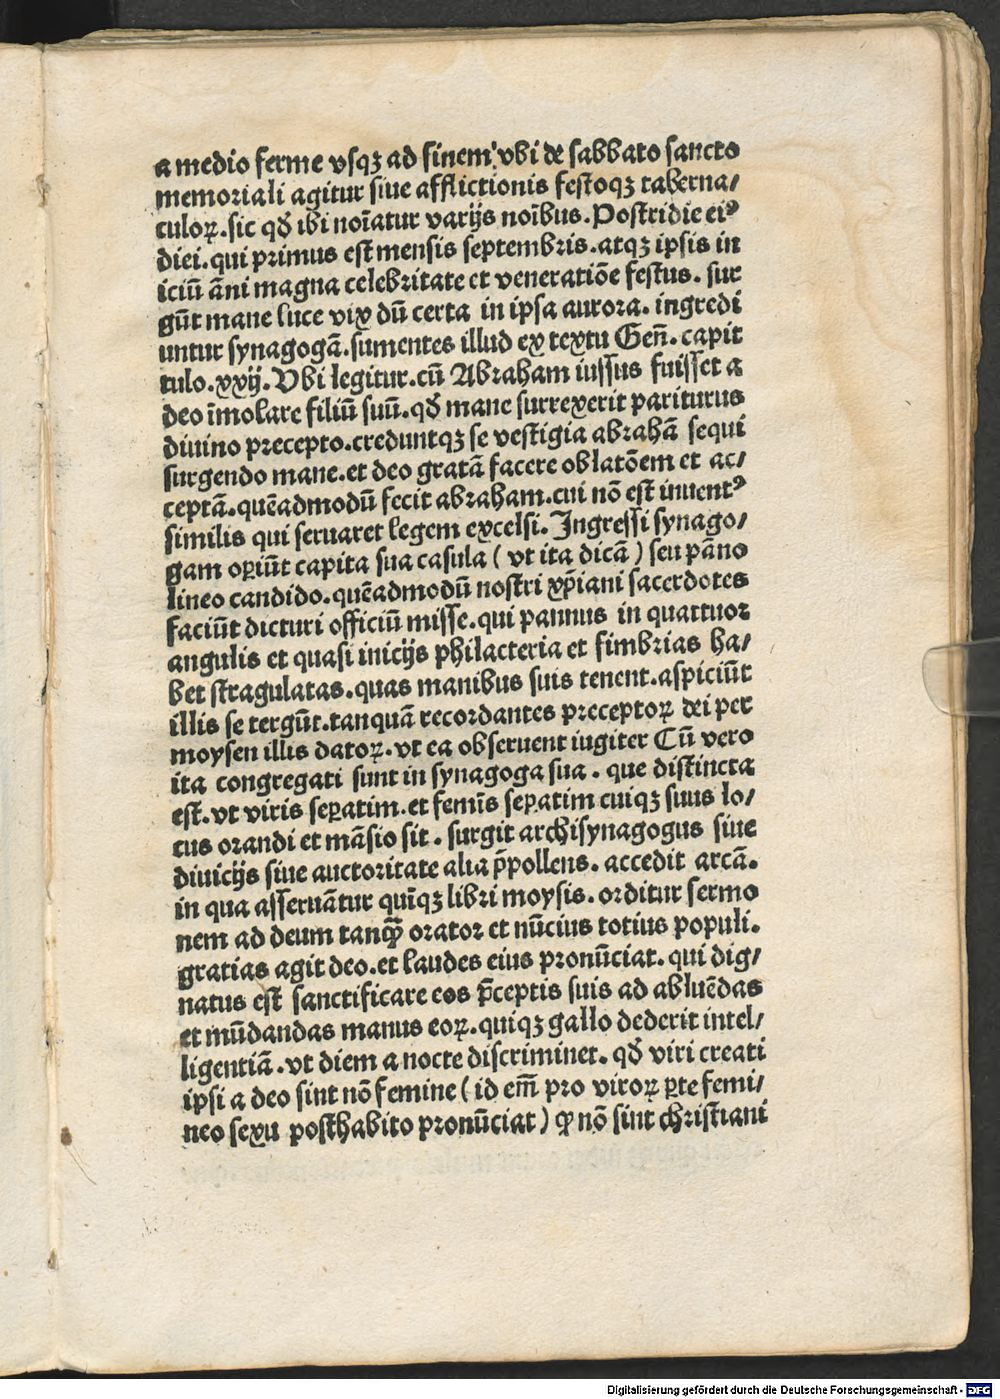 a medio ferme vsqꝫ ad finem vbi de sabbato sancto
memoriali agitur siue afflictionis festoqꝫ taberna/
culoꝝ. sic qđ ibi noīatur varijs noībus. Postridie eiꝰ
diei. qui primus est mensis septembris. atqꝫ ipsis in
iciū āni magna celebritate et veneratiōe festus. sur
gūt mane luce vix dū certa in ipsa aurora. ingredi
untur synagogā. sumentes illud ex textu Geñ. capit
tulo. xxij. Vbi legitur. cū Abraham iussus fuisset a
deo īmolare filiū suū. qđ mane surrexerit pariturus
diuino precepto. creduntqꝫ se vestigia abrahā sequi
surgendo mane. et deo gratā facere oblatōem et ac/
ceptā. quēadmodū fecit abraham. cui nō est inuentꝰ
similis qui seruaret legem excelsi. Ingressi synago/
gam oꝑiūt capita sua casula ( vt ita dicā ) seu pāno
lineo candido. quēadmodū nostri xp̄iani sacerdotes
faciūt dicturi officiū misse. qui pannus in quattuor
angulis et quasi inicijs philacteria et fimbrias ha/
bet stragulatas. quas manibus suis tenent. aspiciūt
illis se tergūt. tanquā recordantes preceptoꝝ dei per
moysen illis datoꝝ. vt ea obseruent iugiter Cū vero
ita congregati sunt in synagoga sua. que distincta
est. vt viris seꝑatim. et femīs seꝑatim cuiqꝫ suus lo/
cus orandi et māsio sit. surgit archisynagogus siue
diuicijs siue auctoritate alia p̄pollens. accedit arcā.
in qua asseruātur quīqꝫ libri moysis. orditur sermo
nem ad deum tanqꝙ̃ orator et nūcius totius populi.
gratias agit deo. et laudes eius pronūciat. qui dig/
natus est sanctificare eos p̄ceptis suis ad abluēdas
et mūdandas manus eoꝝ. quiqꝫ gallo dederit intel/
ligentiā. vt diem a nocte discriminet. qđ viri creati
ipsi a deo sint nō femine ( id em̄ pro viroꝝ ꝑte femi/
neo sexu posthabito pronūciat ) ꝙ nō sint christiani
Digitalisierung gefördert durch die Deutsche Forschungsgemeinschaft - DFG